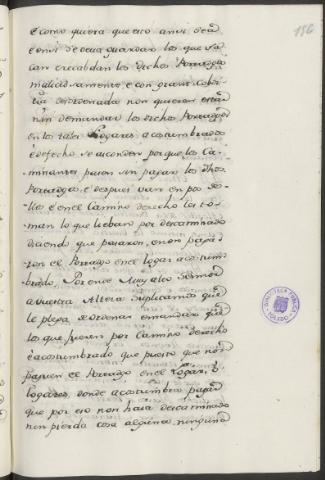 156
E como quiera que esto ansi sea
e ansi se deva guardar los que sa-
can e recabdan los dichos Portazgos
maliciosamente, e con grant cobdi-
cia desordenada non quieren estar
nin demandar los dichos Portazgos
en los tales Logares acostumbrados
e de fecho se asconden porque los Ca-
minantes pasen sin pagar los dhos
Portazgos, e despues van en pos de-
llos e en el Camino derecho les to-
man lo que lieban por descaminado
diciendo que pasaron, e non paga-
ron el Portazgo en el logar acostum-
brado. Por ende Muy alto Señor
a vuestra Alteza suplicamos que
le plega de ordenar e mandar que
los que fueren por Camino derecho
e acostumbrado que puesto que non
paguen el Portazgo en el Logar, ó
logares donde acostumbra pagar
que por eso non haia descaminado
nin pierda cosa alguna, ninguno
BIBLIOTECA PUBLICA
TOLEDO